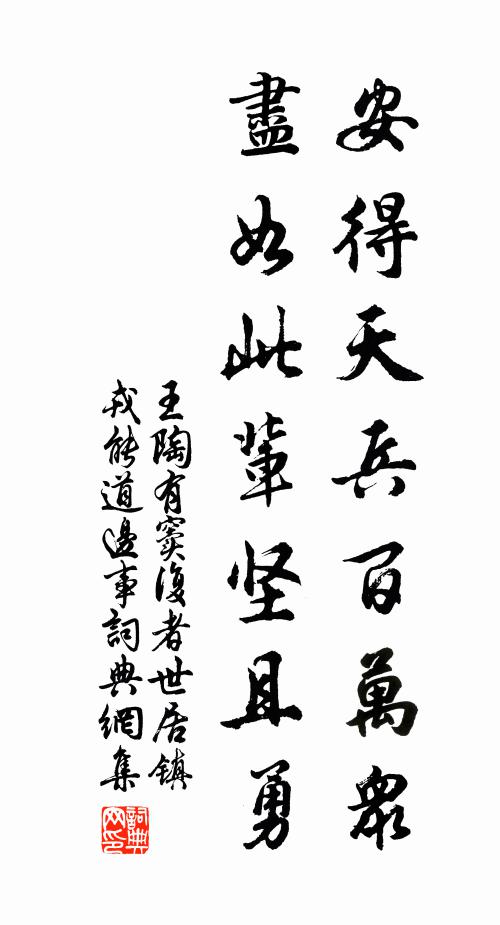 安得天兵百萬衆
盡如此輩坚且勇
王陶有竇復者世居鎮
戎能道邊事詞典網集
詞典
网印